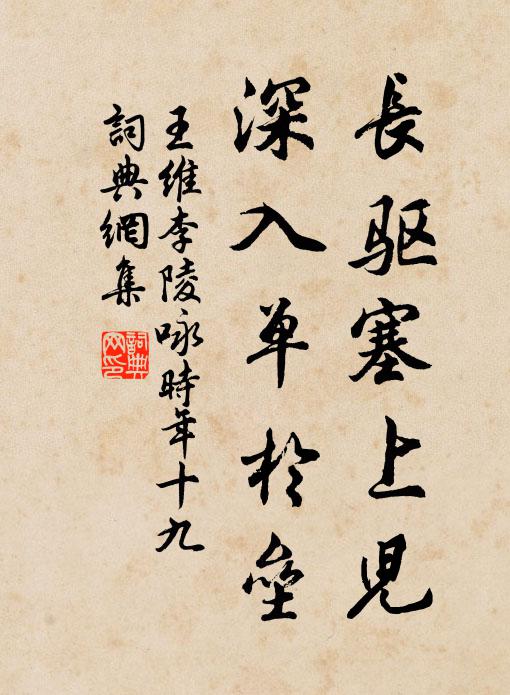 長驱塞上児
深入单於垒
王维李陵咏時年十九
詞典網集
詞典
网印